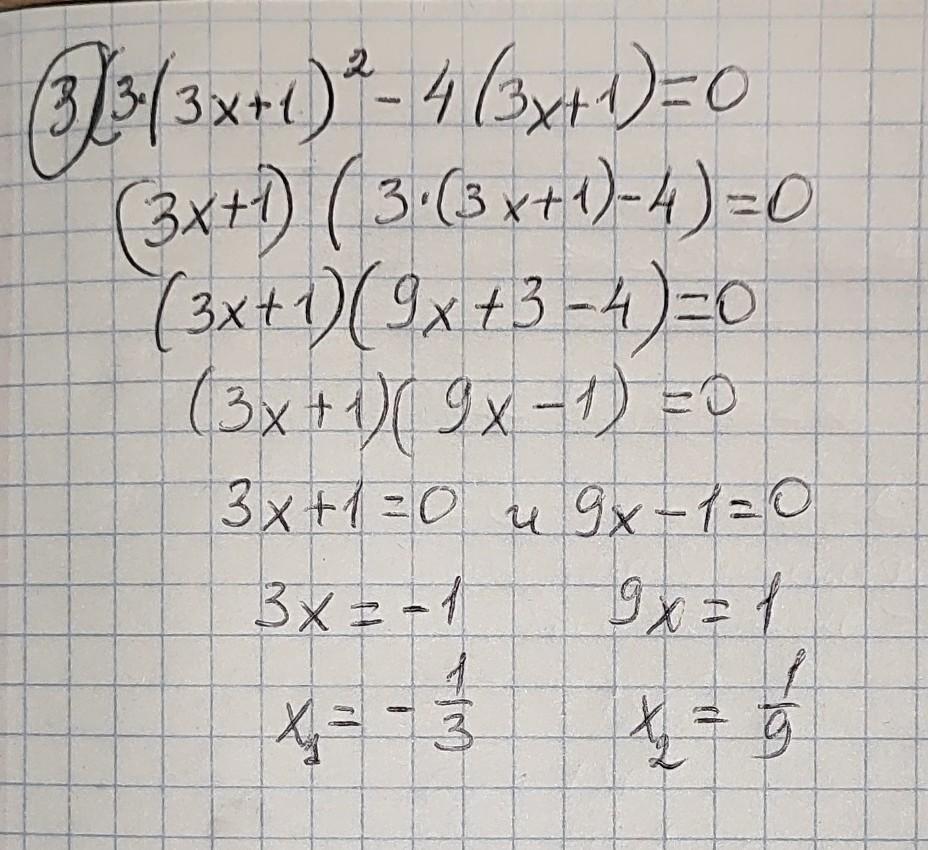 ③ 3·(3x+1)² - 4(3x+1)=0
(3x+1) (3·(3x+1)-4)=0
(3x+1)(9x+3-4)=0
(3x+1)(9x-1)=0
3x+1=0 и 9x-1=0
3x=-1 9x=1
x₁=-1/3 x₂=1/9